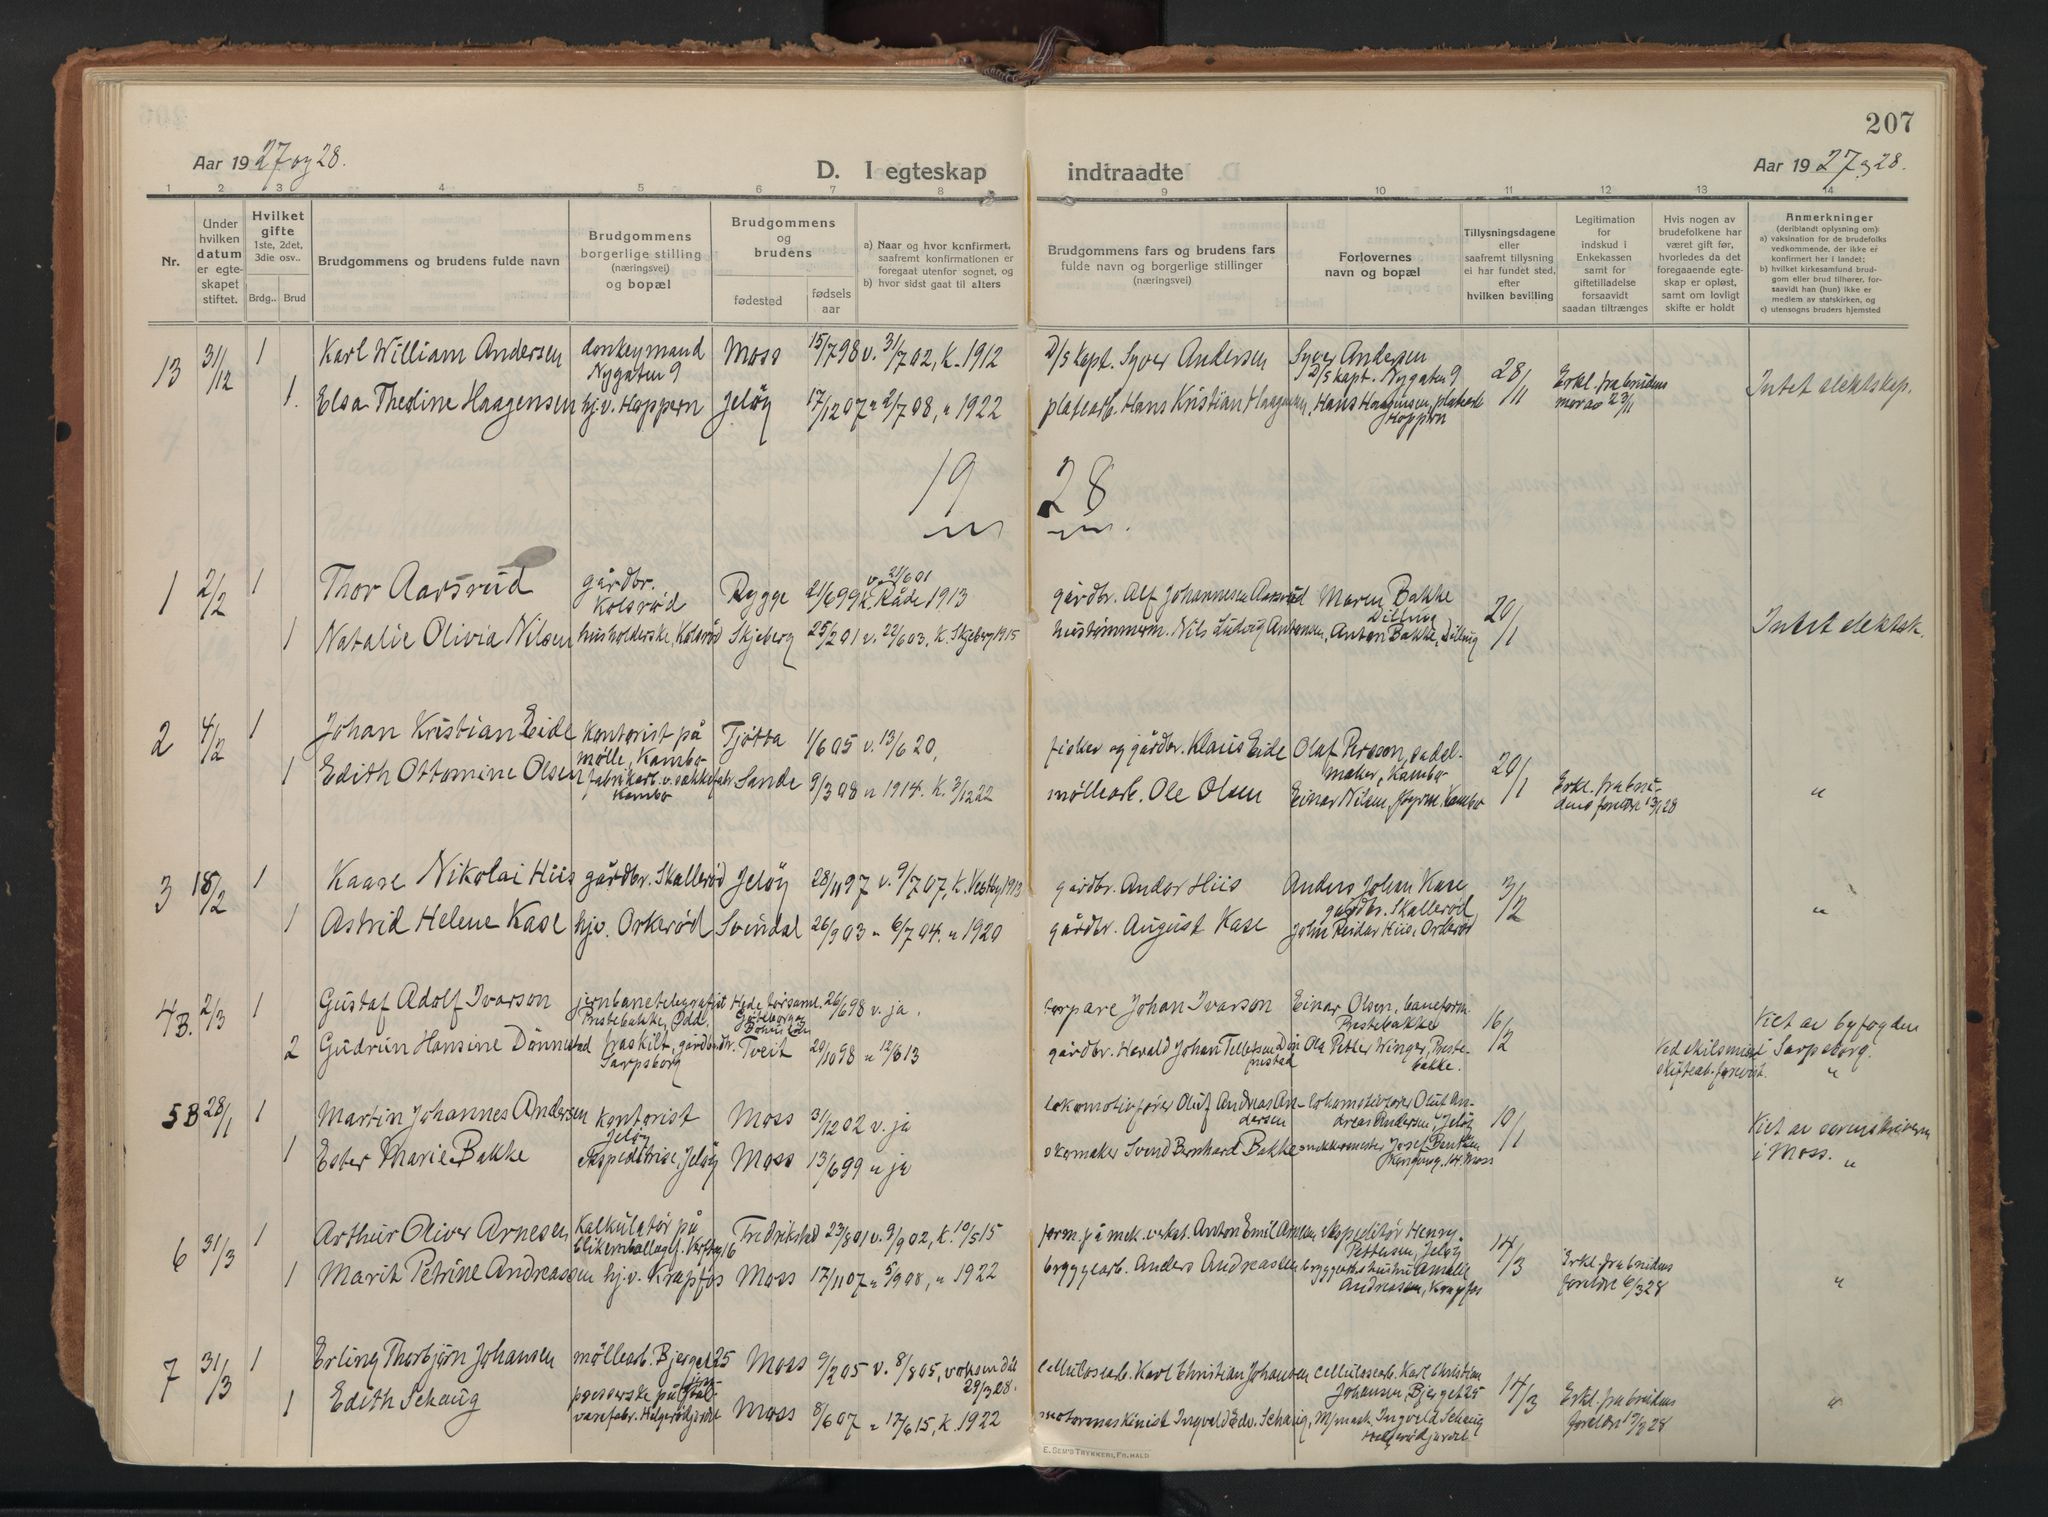 207
Aar 1927 og 28.
D. Iegteskap indtraadte
Aar 1927 og 28.
1 2 3 4 5 6 7 8 9 10 11 12 13 14
Nr.
Under hvilken datum er egteskapet stiftet.
Hvilket gifte 1ste, 2det, 3die osv..
Brdg.. Brud
Brudgommens og brudens fulde navn
Brudgommens borgerlige stilling (næringsvei) og bopæl
Brudgommens og brudens
fødested
fødselsaar
a) Naar og hvor konfirmert, saafremt konfirmationen er foregaat utenfor sognet, og
b) hvor sidst gaat til alters
Brudgommens fars og brudens fars fulde navn og borgerlige stillinger (næringsvei)
Forlovernes navn og bopæl
Tillysningsdagene eller saafremt tillysning ei har fundet sted, efter hvilken bevilling
Legitimation for indskud i Enkekassen samt for giftetilladelse forsaavidt saadan tiltrænges
Hvis nogen av brudefolkene har været gift før, hvorledes da det foregaaende egteskap er opløst, samt om lovligt skifte er holdt
Anmerkninger (deriblandt oplysning om):
a) vaksination for de brudefolks vedkommende, der ikke er konfirmert her i landet;
b) hvilket kirkesamfund brudgom eller brud tilhører, forsaavidt han (hun) ikke er medlem av statskirken, og
c) utensogns bruders hjemsted
13 31/12 1 Karl William Andersen donkeymand Nygaten 9 Moss 15/7 98 v. 31/7 02, k. 1912 D/S Kapt. Syver Andersen Syver Andersen D/S kapt. Nygaten 9 28/11 Erkl. fra brudens morao 23/11 Intet slektskap.
1. Elsa Thedine Haagensen hj.v. Hoppern Jeløy 17/12 07 " 2/7 08, " 1922 platearb. Hans Kristian Haagensen, Hans Haagensen, platearb. Hoppern
19 28
1 2/2 1 Thor Aarsrud gårdbr. Kolsrød Rygge 21/6 99 v. 21/6 01 k. Råde 1913 gårdbr. Alf Johannesen Aarsrud Maren Bakke Dilling 20/1 Intet slektsk.
1 Natalie Olivia Nilsen husholderske, Kolsrød Skjeberg 25/2 01 v. 22/6 03, k. Skjeberg 1915 hustømmerm. Nils Ludvig Antonsen, Anton Bakke, Dilling
2 4/2 1 Johan Kristian Eide Kontorist på mølle, Kambo Tjøtta 1/6 05 v. 13/6 20, fisker og gårdbr. Klaus Eide Olaf Persson, sadelmaker, Kambo 20/1 Erkl. fra brudens foreldre 13/1 28 "
1 Edith Ottomine Olsen, fabrikarb. v. sækkefabr. Kambo Sande 9/3 08 " 1914. k. 3/12 22 møllearb. Ole Olsen Einar Nilsen, Kambo
3 18/2 1 Kaare Nikolai Hiis gårdbr. Skallerød Jeløy 28/11 97 v. 9/7 07, k. Vestby 1913 gårdbr. Andor Hiis Anders Johan Kase gårdbr. Skallerød, 3/12 "
1 Astrid Helene Kase hjv. Orkerød Svindal 26/9 03 " 6/7 04. " 1920 gårdbr. August Kase John Reidar Hiis, Orkerød
4B. 2/3 1 Gustaf Adolf Ivarson jernbanetelegrafist Prestebakke, Idd. Hede førsaml. Göteborgs og Bohuslän 26/6 98 v. ja. torpare Johan Ivarson Einar Olsen, baneform. Prestebakke 16/2 Viet av byfogden i Sarpsborg. "
2 Gudrun Hansine Dønnestad fraskilt, gårdbr.dtr. Sarpsborg Tveit 20/10 98 " 12/6 13 gårdbr. Harald Johan Tellefsen Dønnestad Ola Petter Winger, Prestebakke. Ved skilsmisse skifteat. forevist.
5B 28/1 1 Martin Johannes Andersen kontorist Jeløy Moss 3/12 02 v. ja lokomotivfører Oluf Andreas Andersen lokomotivfører Oluf Andreas Andersen, Jeløy 10/1 Viet av sorenskriveren i Moss. "
1 Ester Marie Bakke ekspeditrise, Jeløy Moss 13/6 99 " ja skomaker Svend Bernhard Bakke snekkermester Josef Moss
6 31/3 1 Arthur Oliver Arnesen Kalkulatør på blikemballagef. Værftsg. 16 Fredrikstad 23/8 01 v. 9/9 02, k. 10/5 15 form. på mek. verkst. Anton Emil Arnesen ekspeditør Henry Pettersen, Jeløy 14/3 Erkl. fra brudens foreldre 6/3 28 "
1 Marit Petrine Andreassen hj.v. Krapfos Moss 17/11 07 " 5/9 08, " 1922 bryggearb. Anders Andreassen bryggearb.hustru Amalie Andreassen, Krapfos
7 31/3 1 Erling Thorbjørn Johansen møllearb. Bjerget 25 Moss 9/2 05 v. 8/8 05, voksen dåp 29/3 28. cellulosearb. Karl Christian Johansen cellulosearb. Karl Christian Johansen, Bjerget 25 14/3 Erkl. fra brudens foreldre 17/3 28 "
1 Edith Schaug presserske på varefabr. Helgerødgjordet Moss 8/6 07 " 17/6 15, k. 1922 motormaskinist Ingvald Edv. Schaug, M/mask. Ingvald Schaug Helgerødgjordet
E. SEM'S TRYKKERI, FR.HALD